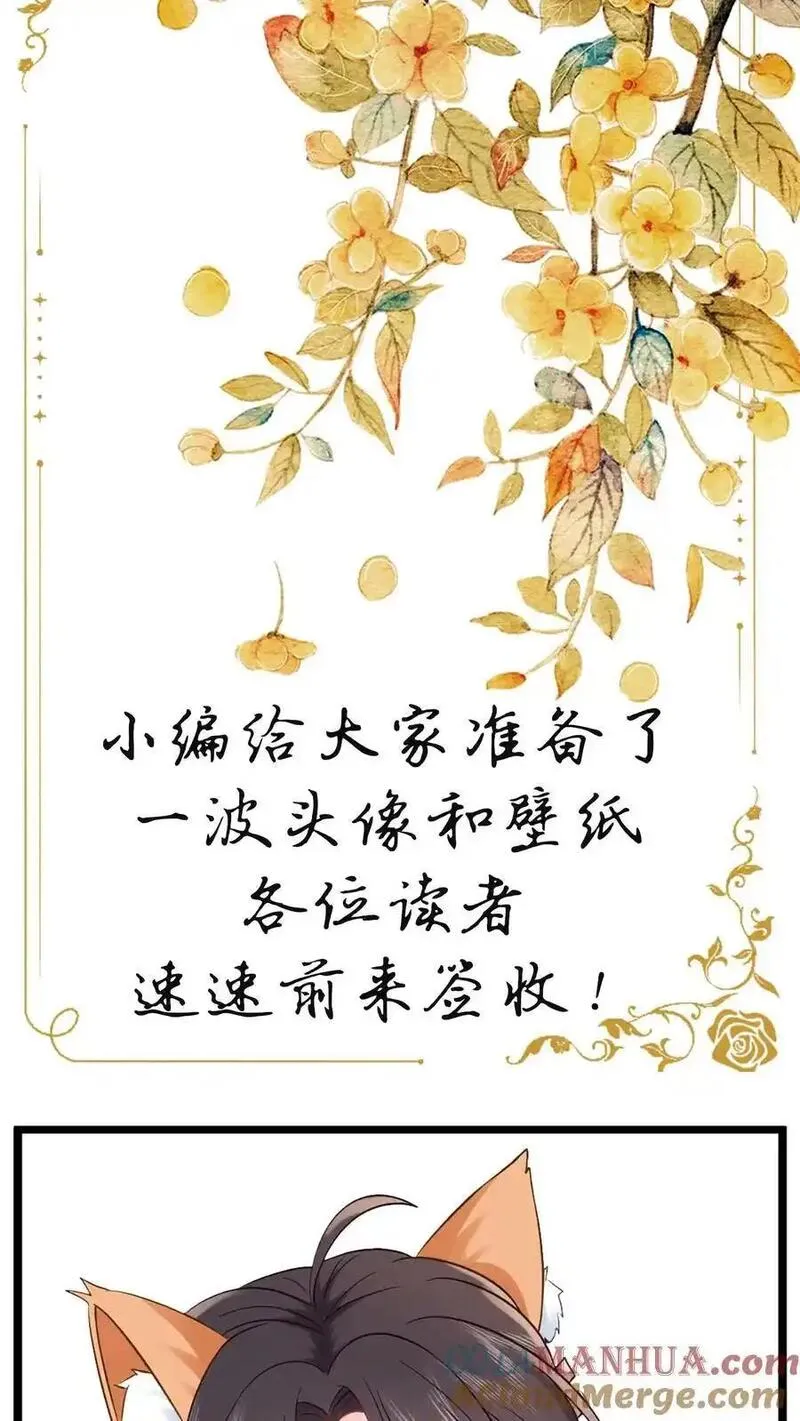 小编给大家准备了
一波头像和壁纸
各位读者
速速前来签收！
MANHUA.com
AndMerge.com